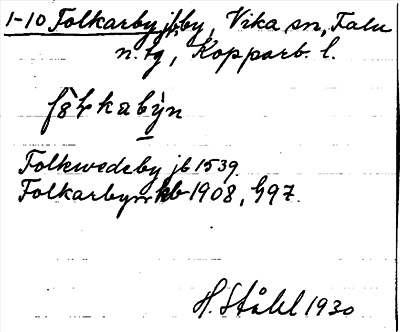 1-10 Folkarby jbby, Vika sn, Falu
n. tg, Kopparb. l.
Folkwedeby jb 1539
Folkarbyn kb 1908, G97.
H. Ståhl 1930